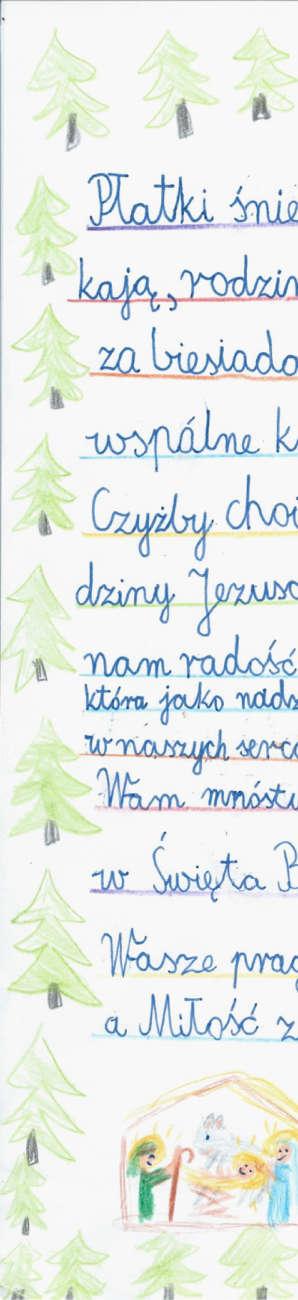 Płatki śnie
kają, rodzin
za biesiado
wspálne k
Czyżby choi
dziny Jezuso
nam radość
która jako nadz
w naszych serca
Wam mnóstw
w Święta B
Wasze prag
a Miłość z